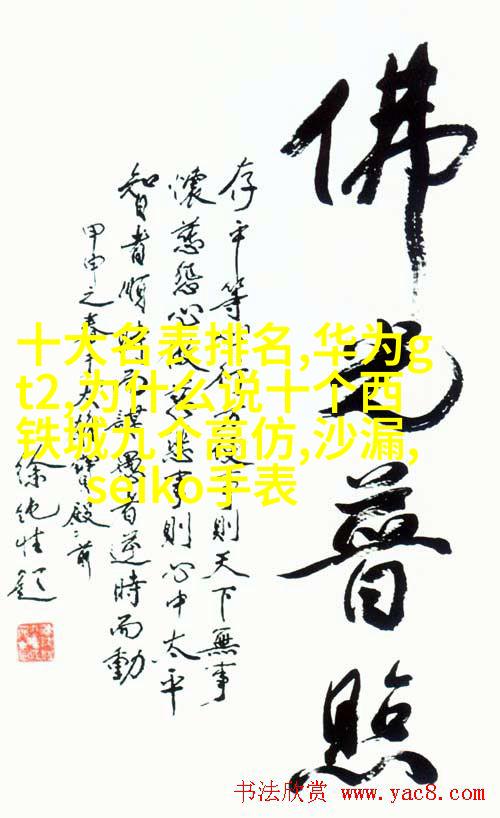 佛光普照
存平等心行方便事則天下無事
懷慈悲心做慈悲事則心中太平
智者順時而謀愚者逆時而動
甲申之春
十大名表排名,华为g
t2,为什么说十个西
铁城九个高仿,沙漏,
seiko手表
书法欣赏 www.yac8.com